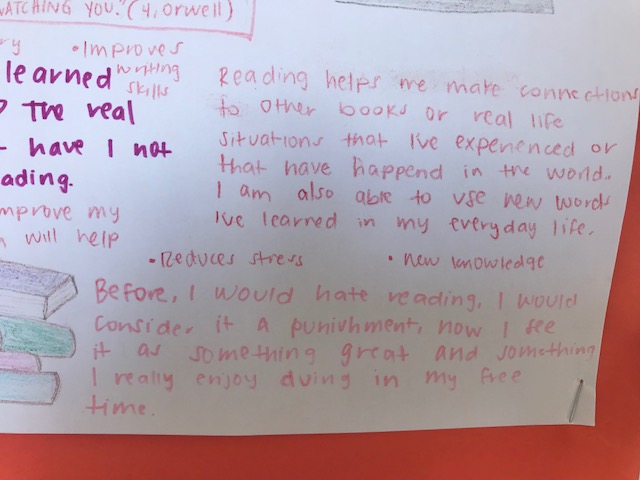 WATCHING YOU." (4, Orwell)
ry
• Improves
writing
skills
learned
? The real
have I not
ading.
mprove my
will help
Reading helps me make connections
to other books or real life
situations that I've experienced or
that have happend in the world.
I am also able to use new words
I've learned in my everyday life.
• Reduces stress
• new knowledge
Before, I would hate reading, I would
consider it a punishment, now I see
it as something great and something
I really enjoy duing in my free
time.